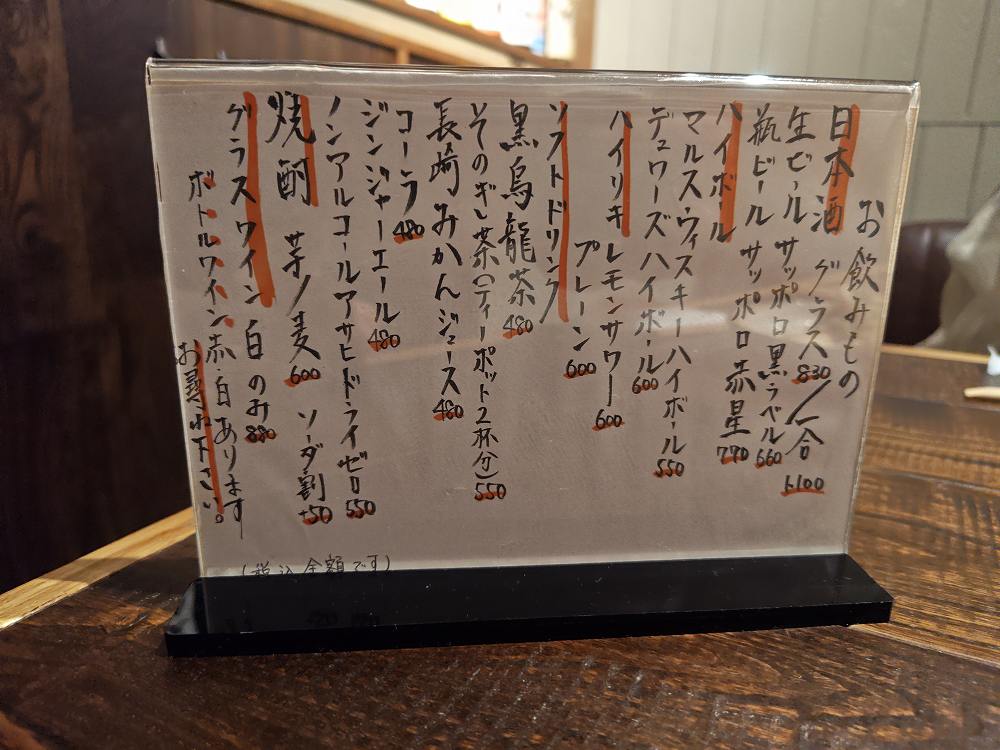 お飲みもの
日本酒 グラス830/一合1,100
生ビール サッポロ黒ラベル660
瓶ビール サッポロ赤星770
ハイボール
マルス・ウィスキーハイボール550
デュワーズハイボール600
ハイリキ レモンサワー600
プレーン600
ソフトドリンク
黒烏龍茶480
そのぎ茶(ティーポット2杯分)550
長崎みかんジュース480
コーラ480
ジンジャーエール480
ノンアルコールアサヒドライゼロ550
焼酎 芋/麦600 ソーダ割+50
グラスワイン白のみ880
ボトルワイン赤・白あります
お尋ね下さい。
(税込金額です)